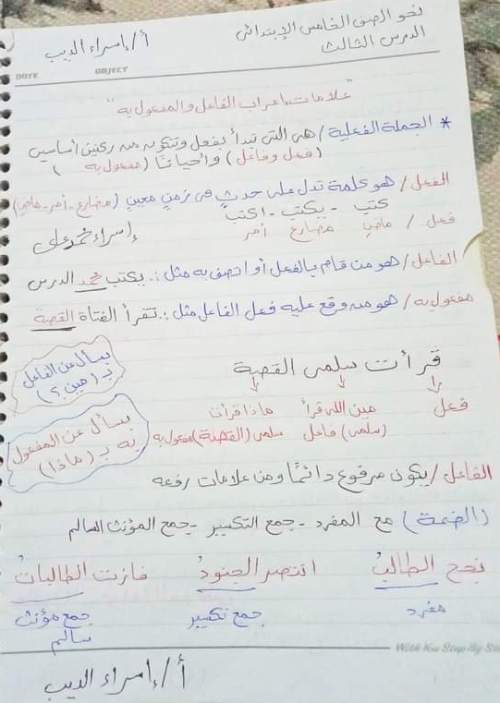 نحو الصف الخامس الإبتدائى
الدرس الثالث
أ/إسراء الديب
DATE OBJECT
"علامات إعراب الفاعل والمفعول به"
* الجملة الفعلية / هى التى تبدأ بفعل وتتكون من ركنين أساسين
(فعل وفاعل) وأحيانًا (مفعول به)
الفعل / هو كلمة تدل على حدث فى زمن معين (مضارع - أمر - ماضى)
كتب - يكتب - اكتب
فعل / ماضى مضارع أمر
إسراء محمد على
الفاعل / هو من قام بالفعل أو اتصف به مثل :. يكتب محمد الدرس
مفعول به / هو من وقع عليه فعل الفاعل مثل :. تقرأ الفتاة القصة
قرأت سلمى القصة
يسأل عن الفاعل
بـ (مين؟)
فعل مين اللى قرأ ماذا قرأت
(سلمى) فاعل سلمى (القصة) مفعول به
يسأل عن المفعول
به بـ (ماذا)
الفاعل / يكون مرفوع دائمًا ومن علامات رفعه
(الضمة) مع المفرد - جمع التكسير - جمع المؤنث السالم
نجح الطالبُ انتصر الجنودُ فازت الطالباتُ
مفرد جمع تكسير جمع مؤنث
سالم
With You Step-By-Ste
أ/إسراء الديب